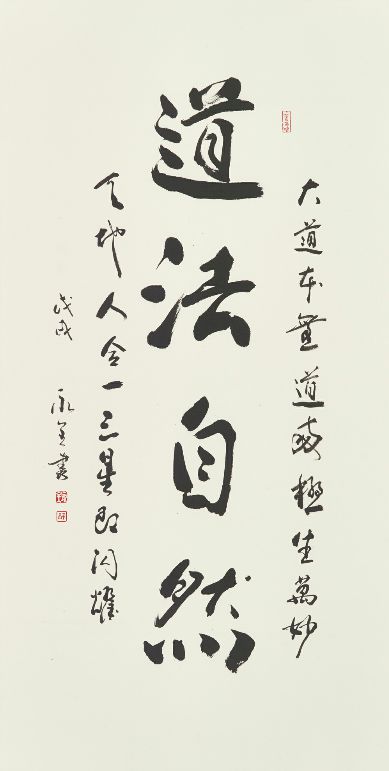 大道本無道兩極生萬妙
道法自然
天地人合一三星即闪耀
戊戌
永全書